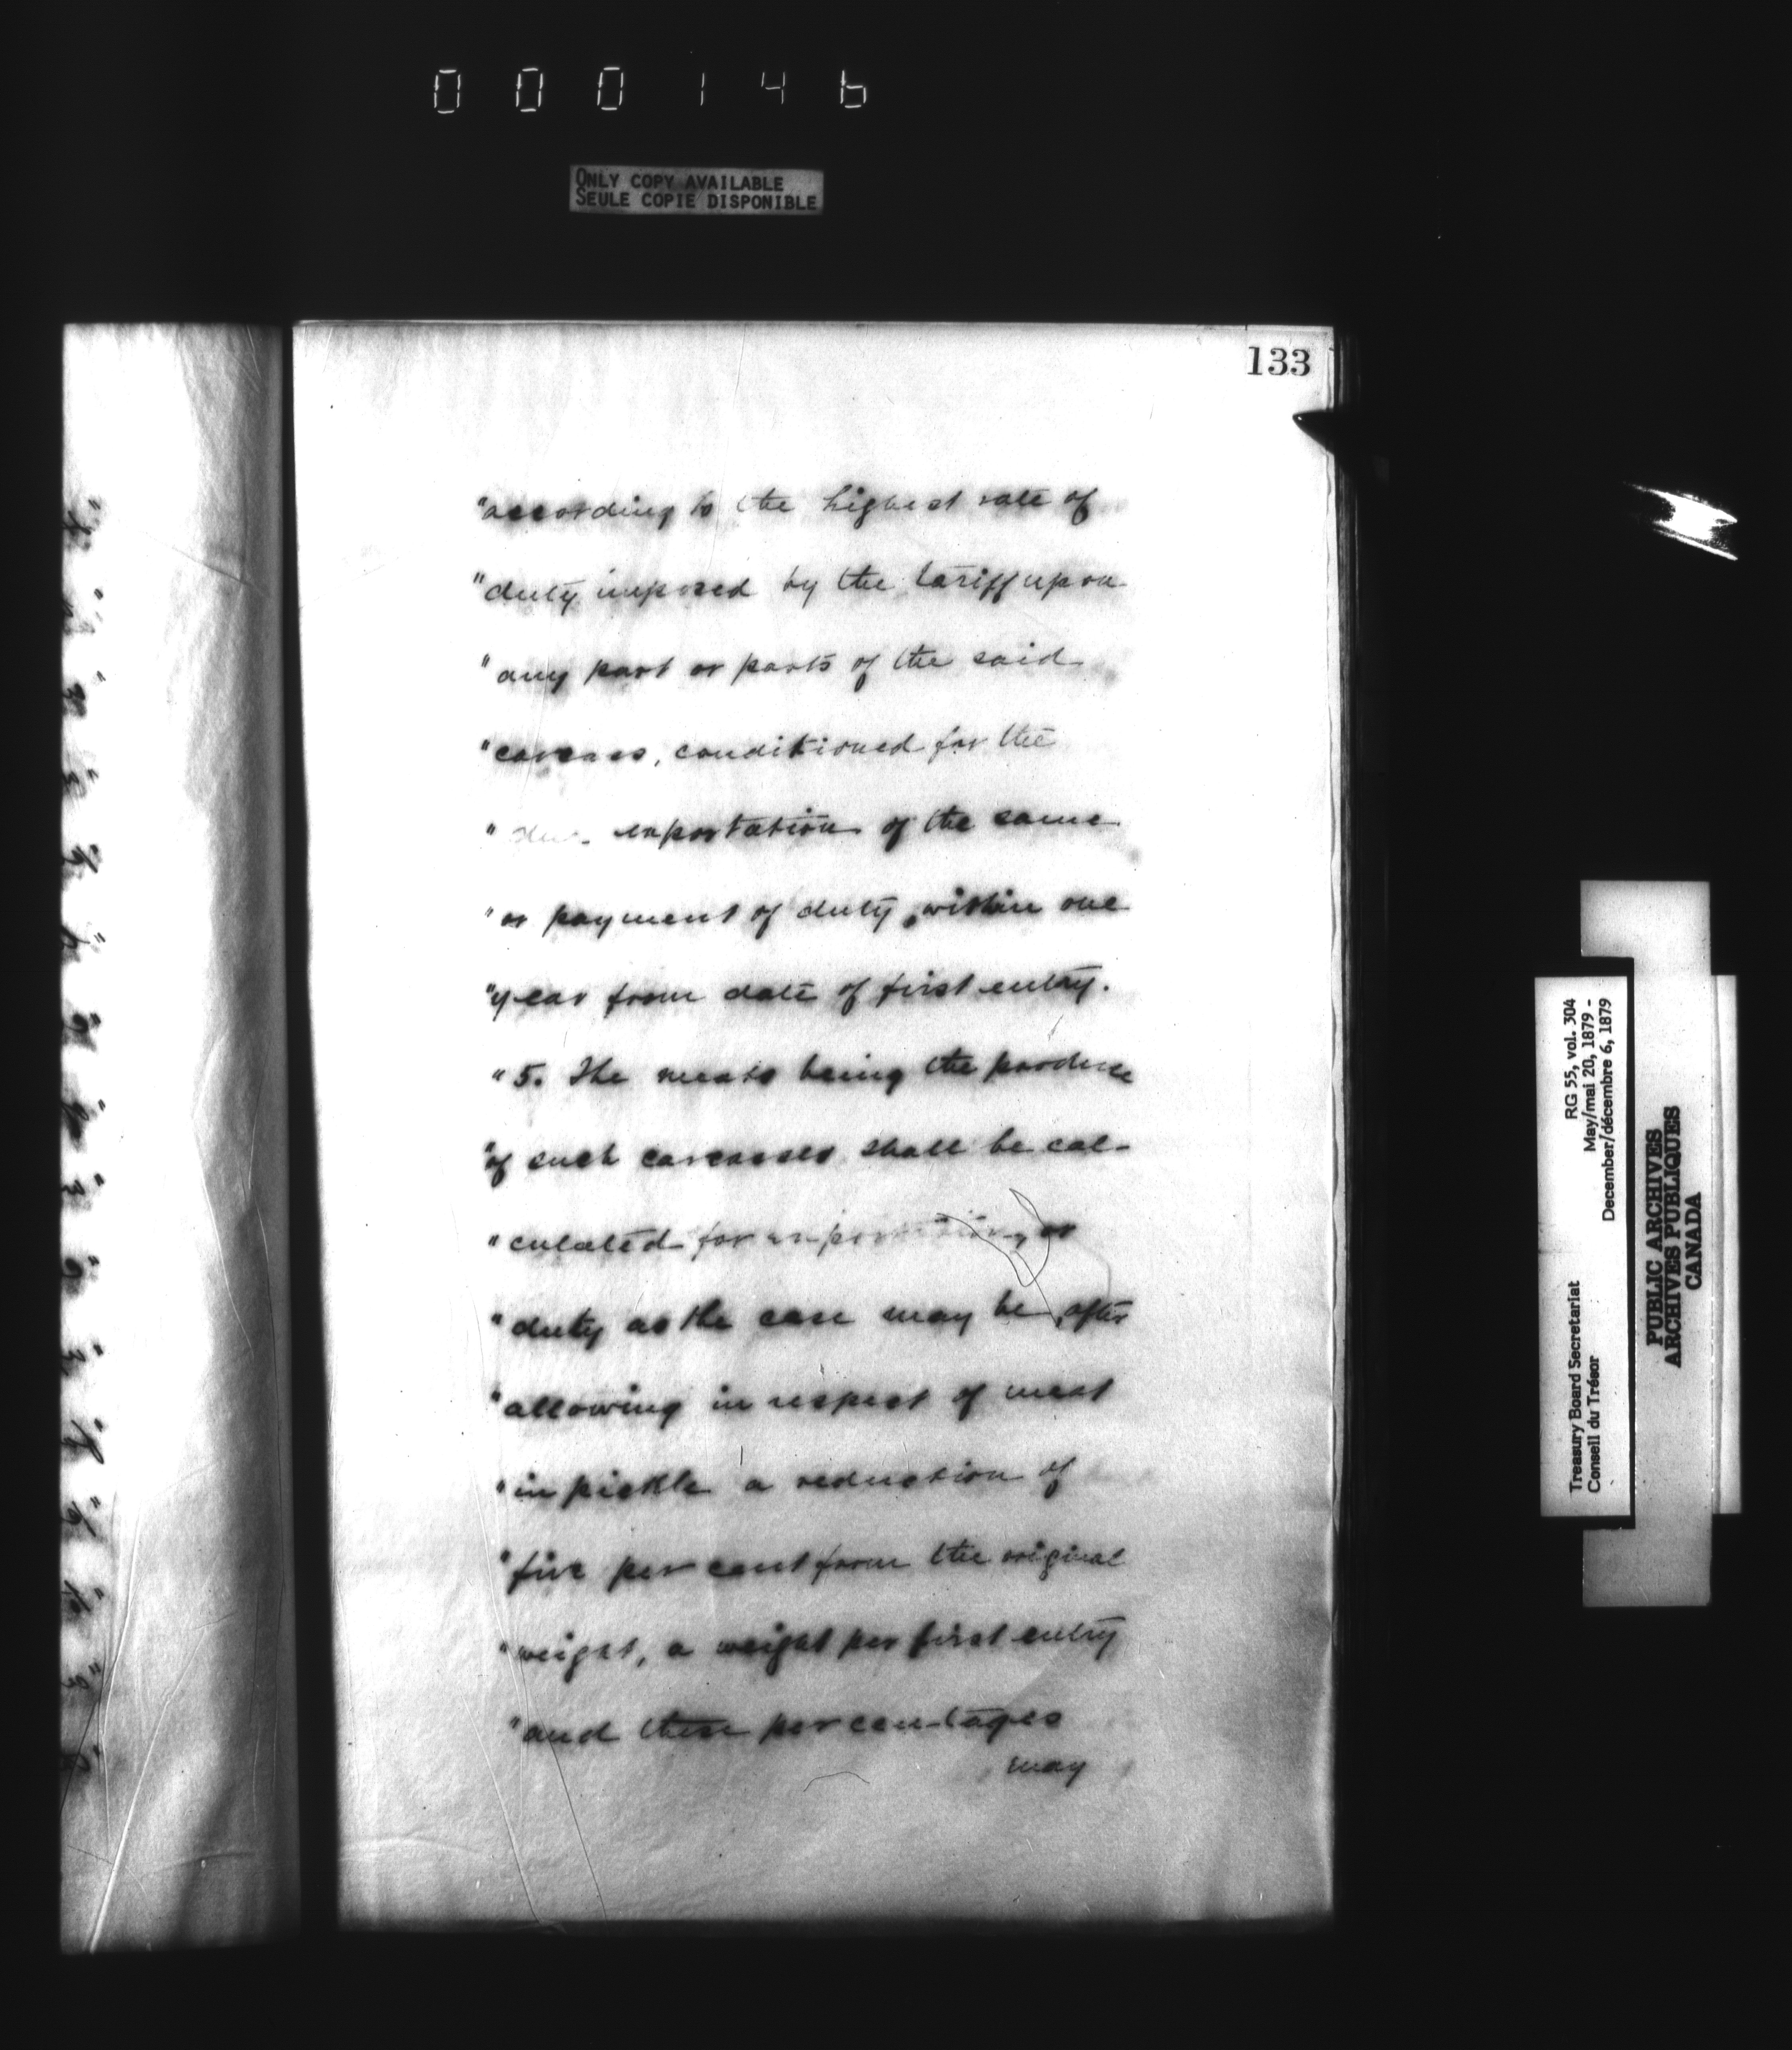 000146
ONLY COPY AVAILABLE
SEULE COPIE DISPONIBLE
133
"according to the highest rate of
"duty imposed by the tariff upon
"any part or parts of the said
"carcass, conditioned for the
" due exportation of the same
"or payment of duty, within one
"year from date of first entry.
"5. The meats being the produce
"of such carcasses shall be cal-
"culated for exportation, or
"duty as the case may be, after
"allowing in respect of meat
"in pickle a reduction of
"five per cent from the original
"weight, a weight per first entry
"and these percentages
may
RG 55, vol. 304
May/mai 20, 1879 -
December/décembre 6, 1879
Treasury Board Secretariat
Conseil du Trésor
PUBLIC ARCHIVES
ARCHIVES PUBLIQUES
CANADA